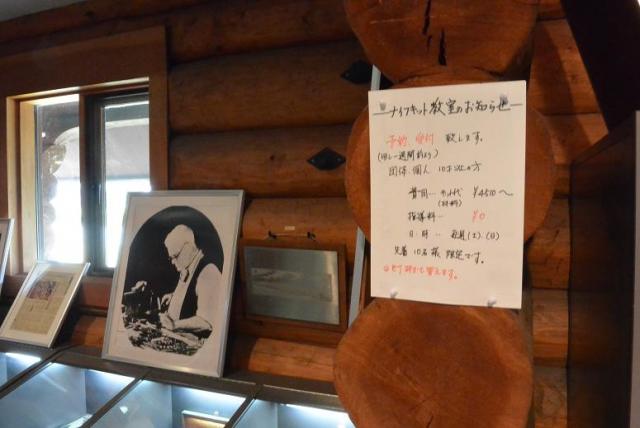 ナイフキット教室のお知らせ
予約、受付 致します。
(中し一週間前より)
団体、個人 10才以上の方
費用… キット代 ¥4500〜
(材料)
指導料… ¥0
日・時… 毎週(土)(日)
先着10名様限定です。